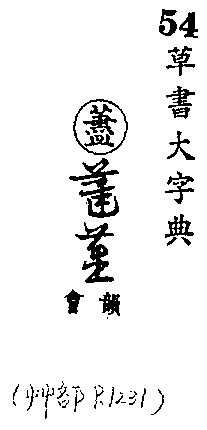 54
草書大字典
藎
韻會
(艸部 P.1231)